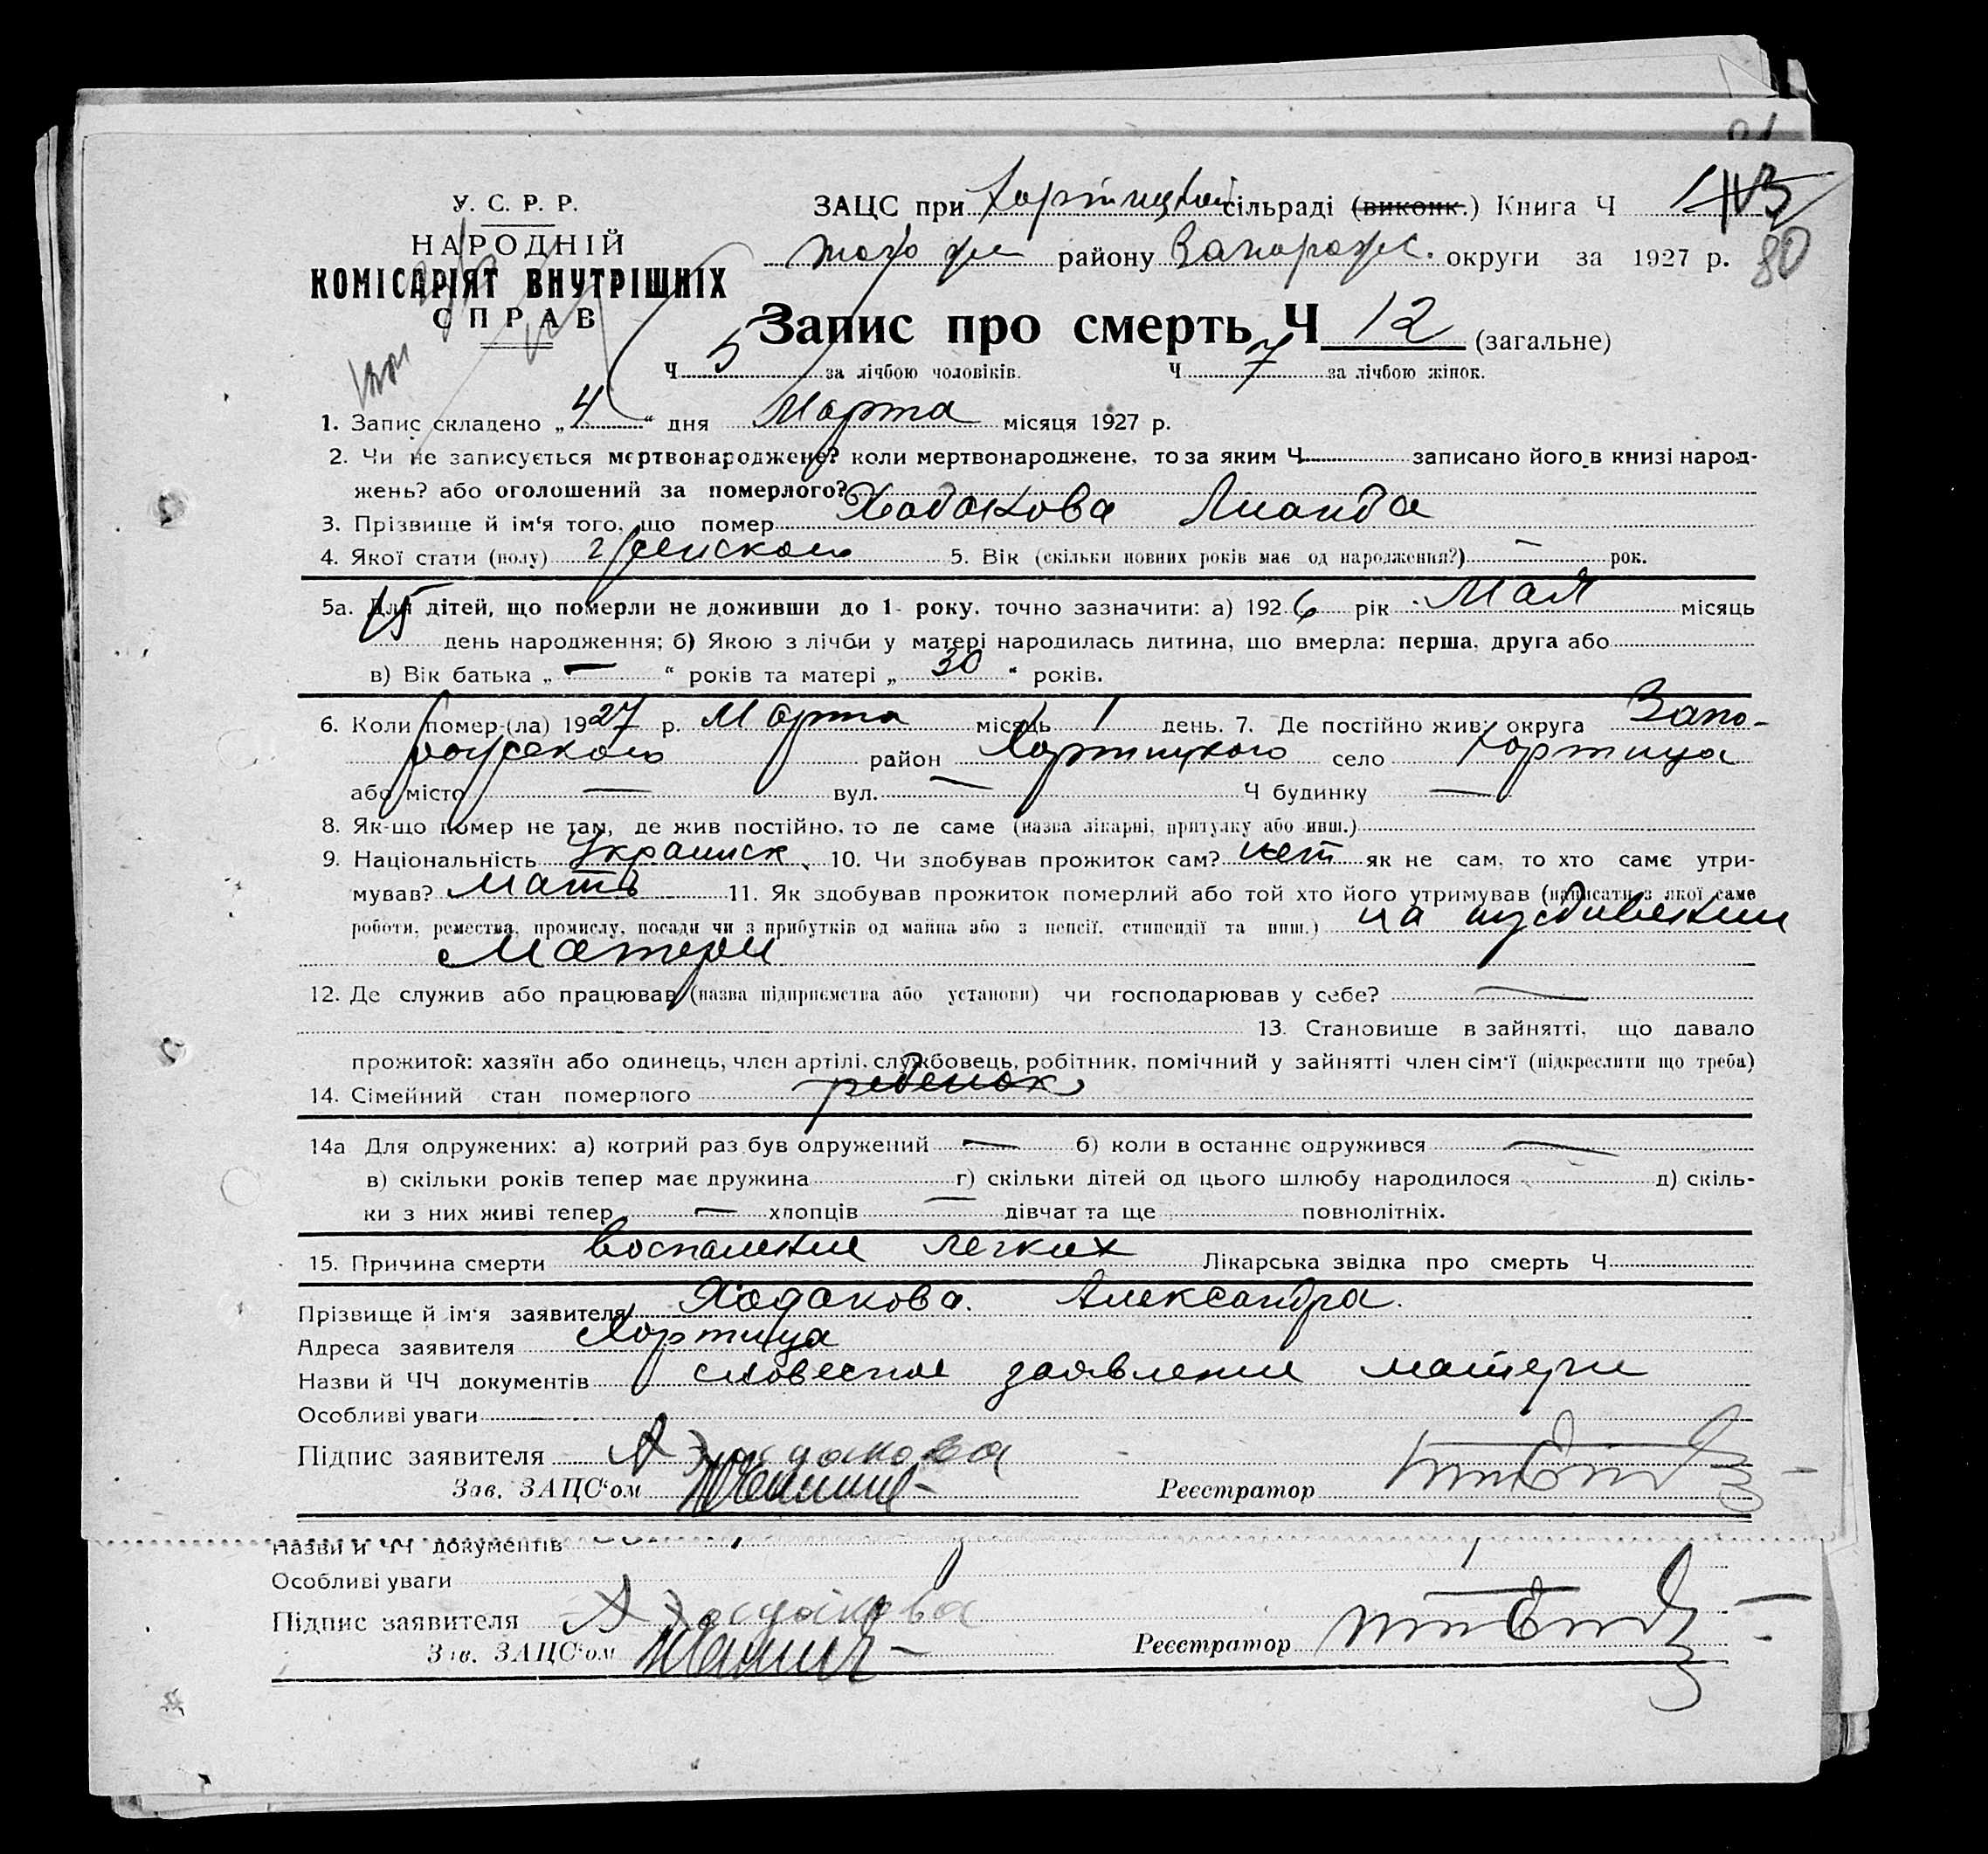 У. С. Р. Р.
НАРОДНІЙ
КОМІСАРІЯТ ВНУТРІШНІХ
СПРАВ
ЗАЦС при Хортицком сільраді (виконк.) Книга Ч
80
того же району Запорожс. округи за 1927 р.
Запис про смерть Ч 12 (загальне)
Ч 5 за лічбою чоловіків. Ч 7 за лічбою жінок.
1. Запис складено „4“ дня Марта місяця 1927 р.
2. Чи не записується мертвонароджене? коли мертвонароджене, то за яким Ч записано його в книзі народ-
жень? або оголошений за померлого?
3. Прізвище й ім‘я того, що помер Ходакова
4. Якої стати (полу) женского 5. Вік (скільки повних років має од народження?) — рок.
5а. Для дітей, що померли не доживши до 1 року, точно зазначити: а) 1926 рік Мая місяць
15 день народження; б) Якою з лічби у матері народилась дитина, що вмерла: перша, друга або
в) Вік батька „ — “ років та матері „ 30 “ років.
6. Коли помер-(ла) 1927 р. Марта місяць 1 день. 7. Де постійно жив: округа Запо-
рожского район Хортицкого село Хортица
або місто — вул. — Ч будинку —
8. Як-що помер не там, де жив постійно, то де саме (назва лікарні, притулку або инш.)
9. Національність Украинск. 10. Чи здобував прожиток сам? нет як не сам, то хто саме утри-
мував? Мать 11. Як здобував прожиток померлий або той хто його утримував (написати з якої саме
роботи, ремества, промислу, посади чи з прибутків од майна або з пенсії, стипендії та инш.) на иждивении
Матери
12. Де служив або працював (назва підприємства або установи) чи господарював у себе? —
13. Становище в зайнятті, що давало
прожиток: хазяїн або одинець, член артілі, службовець, робітник, помічний у зайнятті член сім‘ї (підкреслити що треба)
14. Сімейний стан померлого ребенок
14а Для одружених: а) котрий раз був одружений — б) коли в останнє одружився —
в) скільки років тепер має дружина г) скільки дітей од цього шлюбу народилося д) скіль-
ки з них живі тепер — хлопців — дівчат та ще повнолітніх.
15. Причина смерти воспаление легких Лікарська звідка про смерть Ч
Прізвище й ім‘я заявителя Ходакова. Александра.
Адреса заявителя Хортица
Назви й ЧЧ документів словесное заявление матери
Особливі уваги
Підпис заявителя А Ходакова
Зав. ЗАЦС‘ом Реєстратор
Назви й ЧЧ документів
Особливі уваги
Підпис заявителя А Ходакова
Зав. ЗАЦС‘ом Реєстратор